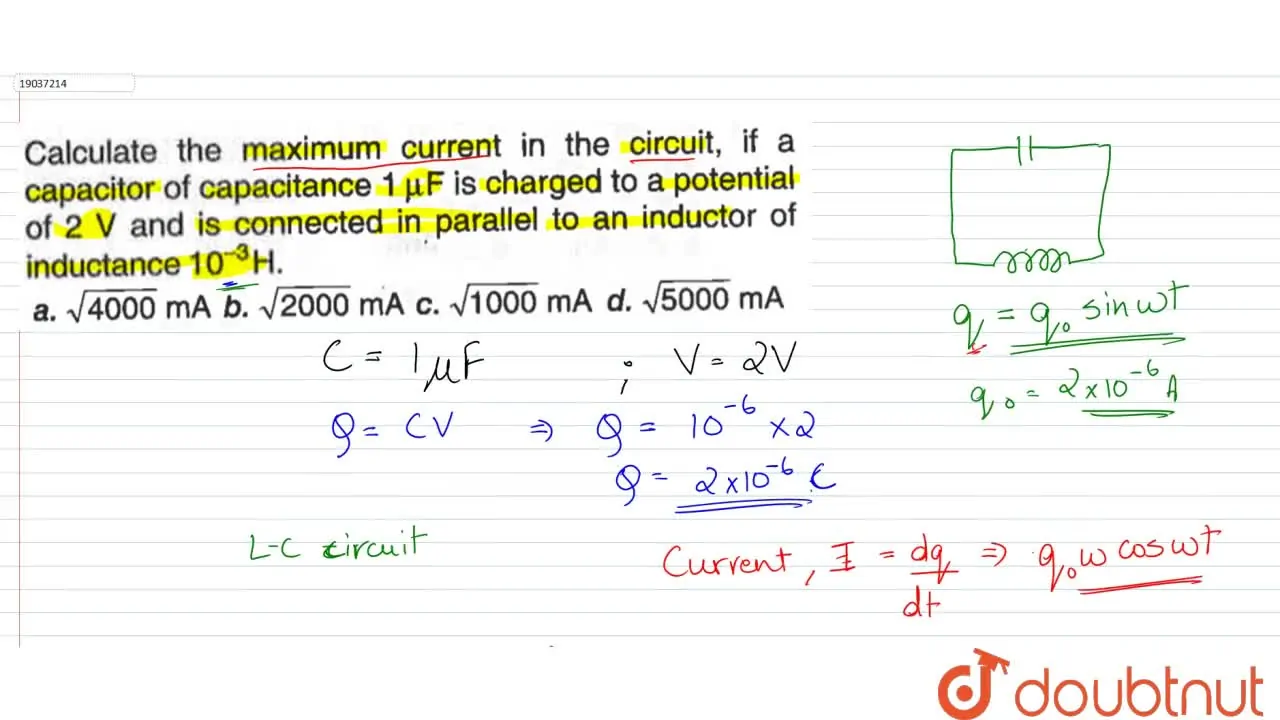 19037214
Calculate the maximum current in the circuit, if a
capacitor of capacitance 1 μF is charged to a potential
of 2 V and is connected in parallel to an inductor of
inductance 10⁻³ H.
a. √4000 mA b. √2000 mA c. √1000 mA d. √5000 mA
C = 1 μF ; V = 2V
q = q₀ sin ωt
q₀ = 2 × 10⁻⁶ A
Q = CV ⇒ Q = 10⁻⁶ × 2
Q = 2 × 10⁻⁶ C
L-C circuit
Current, I = dq/dt ⇒ q₀ ω cos ωt
doubtnut